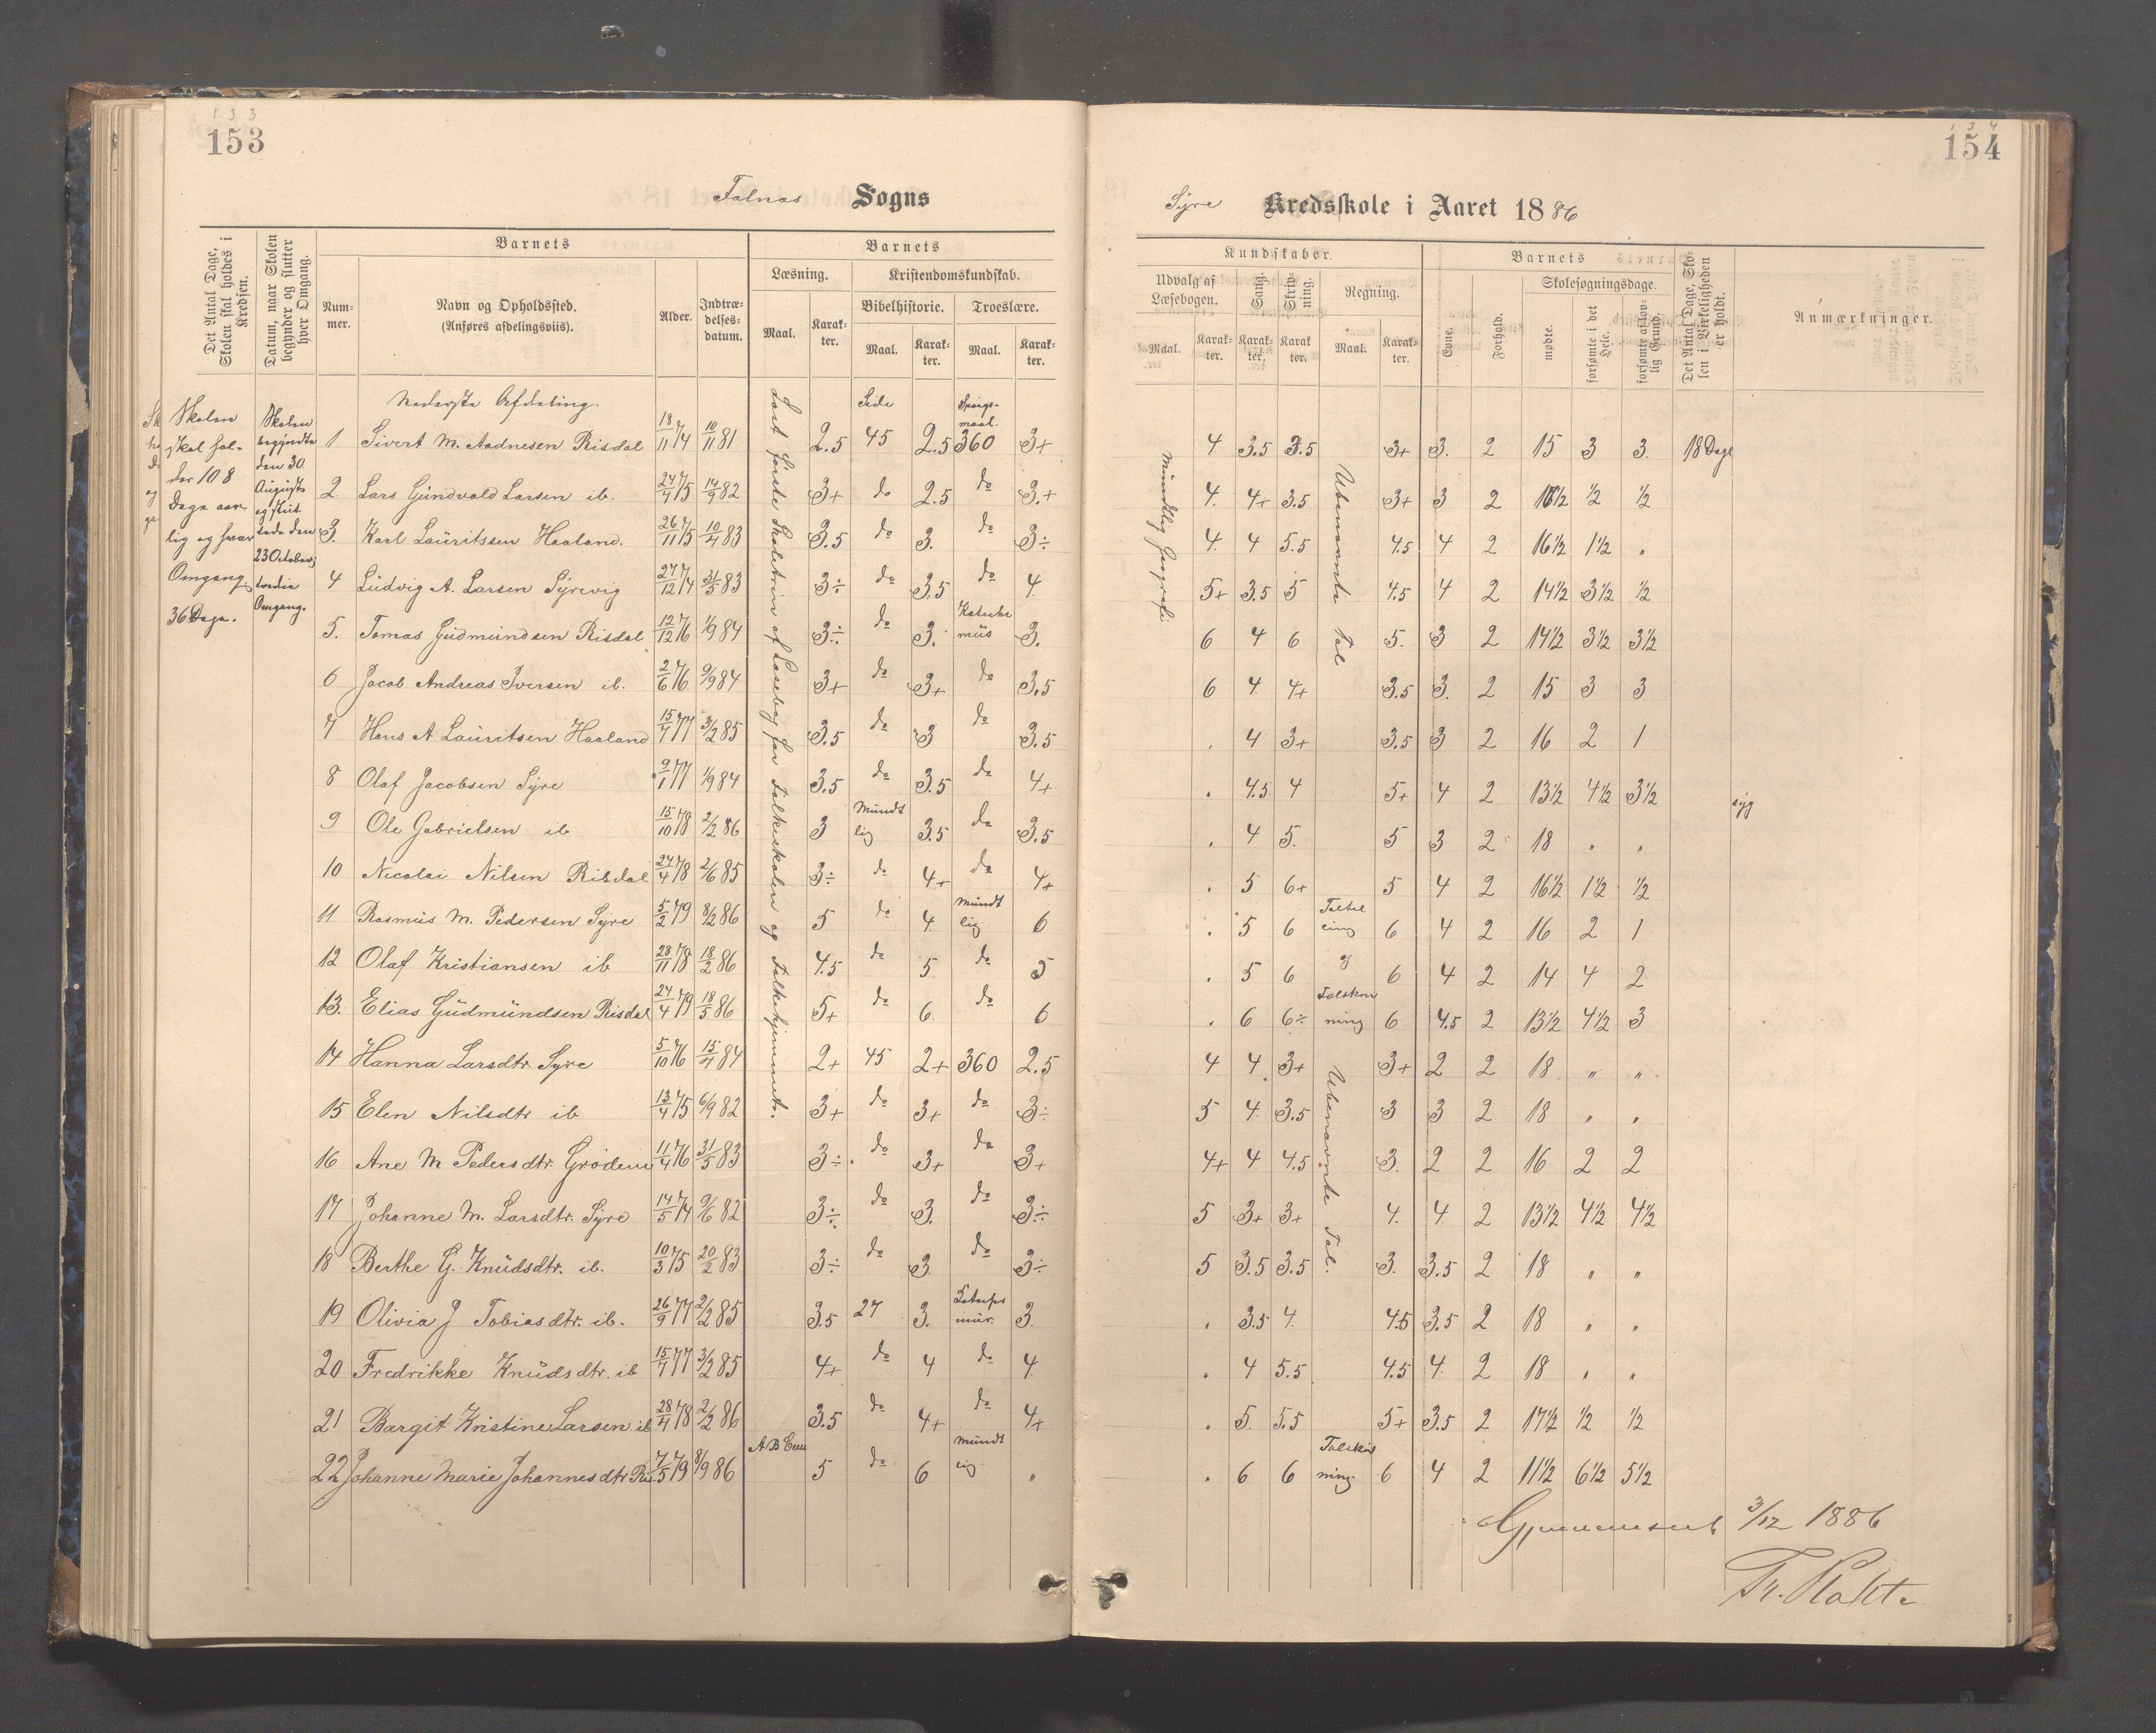 133
153
Falnas Sogns
Det Antal Dage, Skolen skal holdes i Kredsen.
Datum, naar Skolen begynder og slutter hver Omgang.
Barnets
Num-mer.
Navn og Opholdssted. (Anføres afdelingsviis).
Alder.
Indtræ-delses-datum.
Barnets
Læsning.
Maal.
Karak-ter.
Kristendomskundskab.
Bibelhistorie.
Maal.
Karak-ter.
Troeslære.
Maal.
Karak-ter.
Skolen
skal hol-
des 108
Dage aar-
lig og hver
Omgang
36 Dage.
Skolen
begyndte
den 30.
August
og slut
tede den
23 October;
tredie
Omgang.
Læst første Skoletrin af Læsebog for Folkeskolen og Folkehjemmet.
Nederste Afdeling. Side Spørgs-maal.
1 Sivert M. Aadnesen Risdal 18/11 74 10/11 81 2.5 45 2.5 360 3+
2 Lars Gundvald Larsen ib. 24/4 75 14/9 82 3+ do 2.5 do 3.+
3. Karl Lauritssen Haaland. 26/11 75 10/4 83 3.5 do 3. do 3÷
4 Ludvig A. Larsen Syrevig 27/12 74 31/5 83 3÷ do 3.5 do 4
5. Tomas Gudmundsen Risdal 12/12 76 1/9 84 3÷ do 3. Kateche mus 3.
6 Jacob Andreas Iversen ib. 2/6 76 9/9 84 3+ do 3+ do 3.5
7 Hans A Lauritsen Haaland 15/7 77 3/2 85 3.5 do 3 do 3.5
8 Olaf Jacobsen Syre 9/1 77 1/9 84 3.5 do 3.5 do 4+
9 Ole Gabrielsen ib 15/10 78 2/2 86 3 Mundt lig 3.5 do 3.5
10 Nicolai Nilsen Risdal 24/4 78 2/6 85 3÷ do 4+ do 4+
11 Rasmus M. Pedersen Syre 5/2 79 8/2 86 5 do 4 Mundt lig 6
12 Olaf Kristiansen ib 28/11 78 18/2 86 4.5 do 5 do 5
13. Elias Gudmundsen Risdal 24/4 79 18/5 86 5+ do 6 do 6
14 Hanna Larsdtr. Syre 5/10 76 15/4 84 2+ 45 2+ 360 2.5
15 Elen Nilsdtr ib 13/4 75 6/9 82 3+ do 3+ do 3÷
16 Ane M Pedersdtr. Grødem 11/4 76 31/5 83 3÷ do 3+ do 3+
17 Johanne M. Larsdtr. Syre 14/5 74 9/6 82 3÷ do 3. do 3÷
18 Berthe G. Knudsdtr. ib. 10/3 75 20/2 83 3÷ do 3 do 3÷
19 Olivia J Tobiasdtr. ib. 26/9 77 2/2 85 3.5 27 3. 3.
20 Fredrikke Knudsdtr. ib 15/7 77 3/2 85 4+ do 4 do 4
21 Bargit Kristine Larsen ib 28/4 78 2/2 86 3.5 do 4+ do 4+
22 Johanne Marie Johannesdtr Ris. 7/5 79 8/9 86 ABCeen 5 do 6 Mundt lig "
134
154
Syre Kredsskole i Aaret 1886
Kundskaber.
Udvalg af Læsebogen.
Maal.
Karak-ter.
Sang.
Karak-ter.
Skriv-ning.
Karak-ter.
Regning.
Maal.
Karak-ter.
Barnets
Evne.
Forhold.
Skolesøgningsdage.
mødte.
forsømte i det Hele.
forsømte af lov-lig Grund.
Det Antal Dage, Sko-len i Virkeligheden er holdt.
Anmærkninger.
Mundtlig Geografi
Ubenævnte Tal
4 3.5 3.5 3+ 3. 2 15 3 3 18 Dage
4. 4+ 3.5 3+ 3 2 16 1/2 1/2 1/2
4. 4 5.5 4.5 4 2 16 1/2 1 1/2 "
5+ 3.5 5 4.5 4 2 14 1/2 3 1/2 1/2
6 4 6 5. 3 2 14 1/2 3 1/2 3 1/2
6 4 4+ 3.5 3. 2 15 3 3
. 4 3+ 3.5 3 2 16 2 1
. 4.5 4 5+ 4 2 13 1/2 4 1/2 3 1/2 syg
. 4 5. 5 3 2 18 " "
. 5 6+ 5 4 2 16 1/2 1 1/2 1/2
. 5 6 Taltæl ling 6 4 2 16 2 1
. 5 6 og 6 4 2 14 4 2
. 6 6÷ Talskriv ning 6 4.5 2 13 1/2 4 1/2 3
Ubenævnte Tal.
4 4 3+ 3+ 2 2 18 " "
5 4 3.5 3 3 2 18 " "
4+ 4 4.5 3. 2 2 16 2 2
5 3+ 3+ 4. 4 2 13 1/2 4 1/2 4 1/2
5 3.5 3.5 3. 3.5 2 18 " "
. 3.5 4 4.5 3.5 2 18 " "
. 4 5.5 4.5 4 2 18 " "
. 5. 5.5 5+ 3.5 2 17 1/2 1/2 1/2
. 6 6 Talskriv ning. 6 4 2 11 1/2 6 1/2 5 1/2
Gjennemseet 3/12 1886